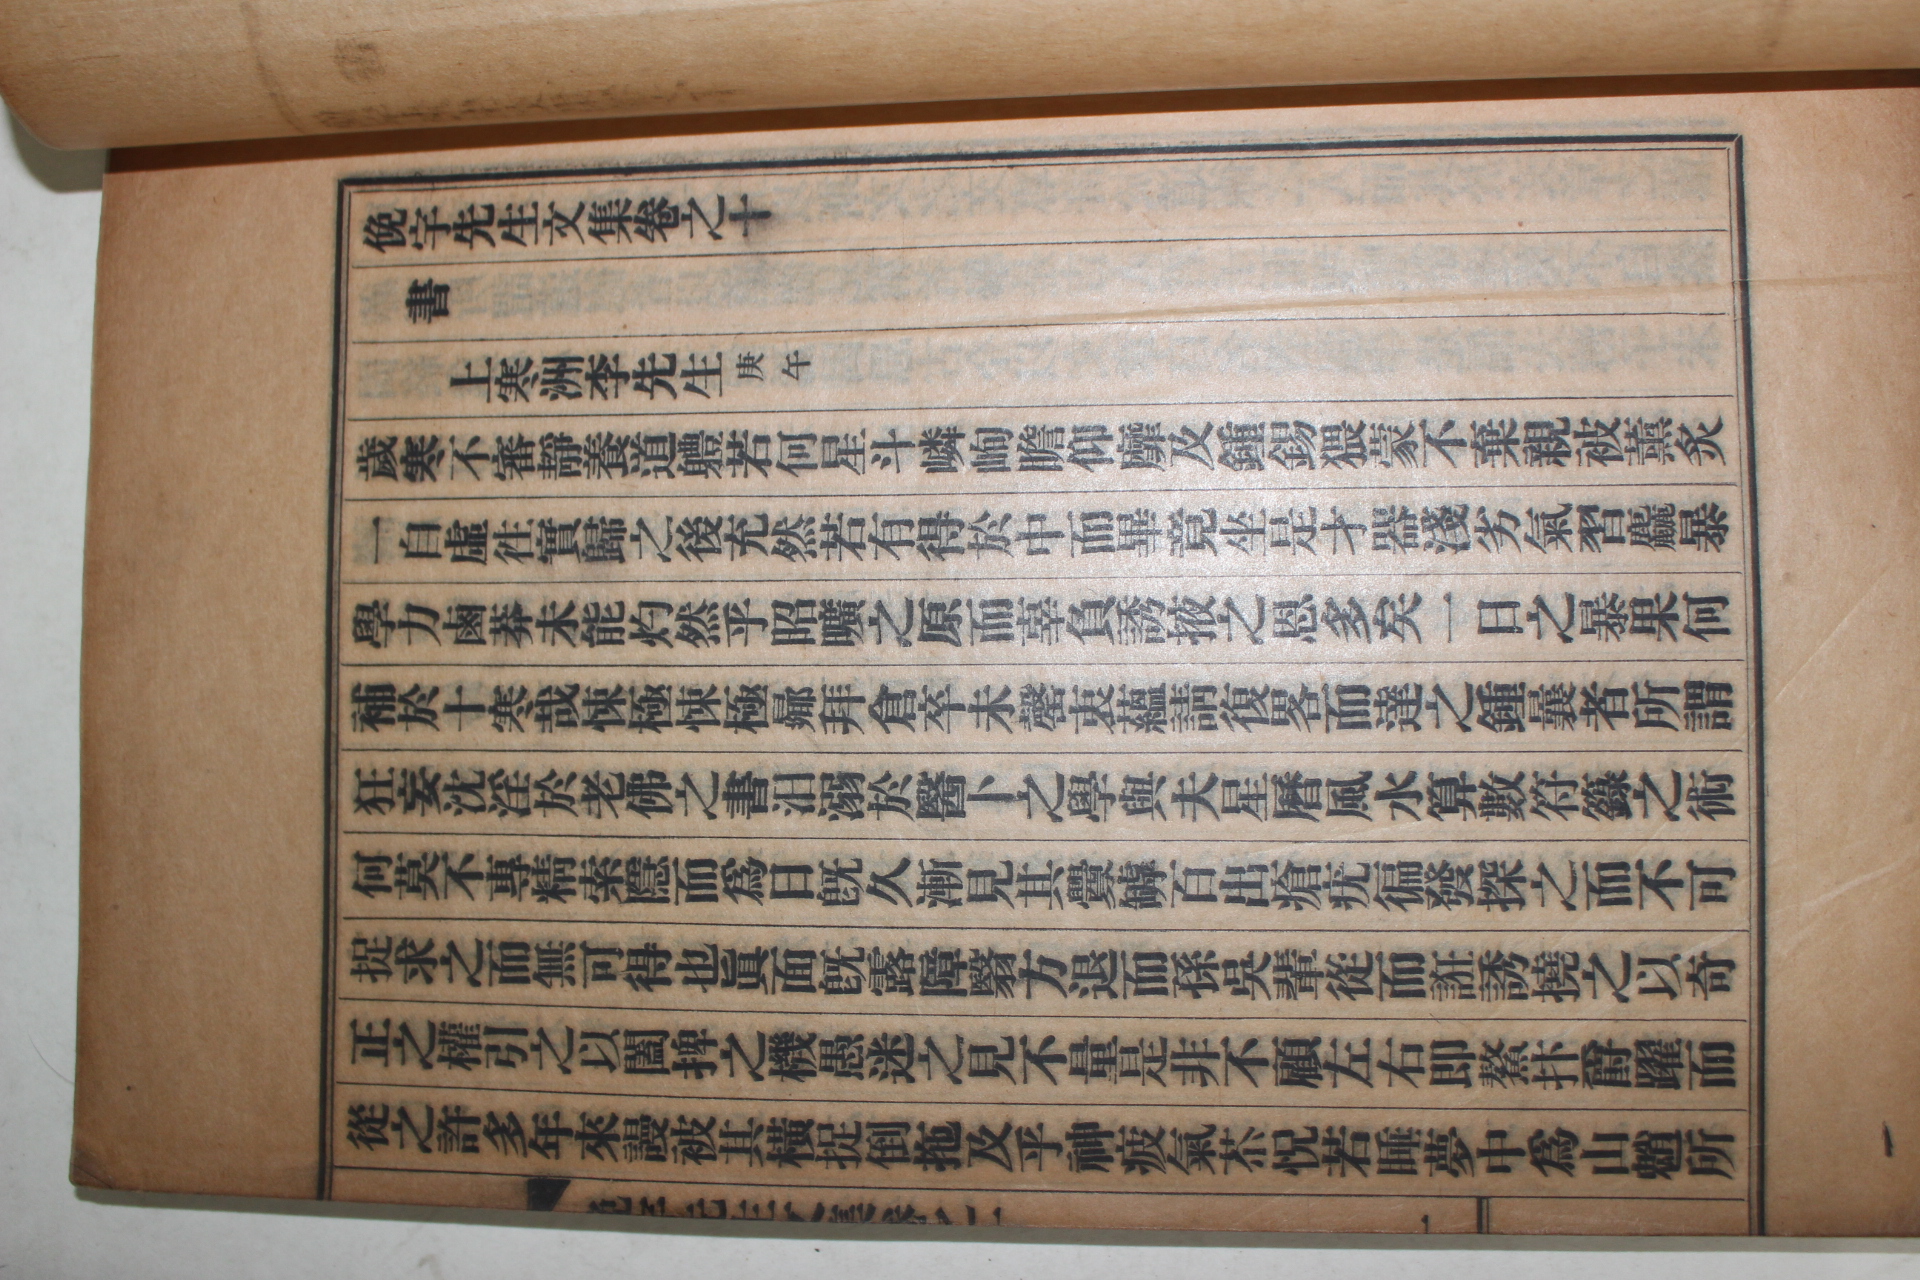 俛宇先生文集卷之十
書
上寒洲李先生 庚午
歲寒不審靜養道軆若何星斗嶙峋瞻仰靡及鍾錫猥蒙不棄親被薰炙
一自虛徃實歸之後充然若有得於中而畢竟坐是才器淺劣氣習麤暴
學力鹵莽未能灼然乎昭曠之原而辜負誘掖之恩多矣一日之暴果何
補於十寒哉悚極悚極曏拜倉卒未罄衷蘊請復畧而達之鍾曩者所謂
狂妄沈淫於老佛之書汨溺於醫卜之學與夫星曆風水算數符籙之術
何莫不專精索隱而爲日旣久漸見其釁罅百出瘡疣徧發探之而不可
捉求之而無可得也眞面旣露障翳方退而孫吳輩從而誑誘撓之以奇
正之權引之以闔捭之機愚迷之見不量是非不顧左右即鰲抃爵躍而
從之許多年來謾被其橫捉倒拖及乎神疲氣苶怳若睡夢中爲山魈所
俛宇先生文集卷之十
一